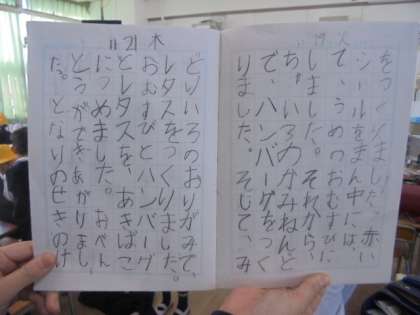 19 火
をつくりました。赤い
シールをまん中には、
て、うめのおむすびに
しました。それから、
ちゃいろのかみねんど
で、ハンバーグをつく
りました。そして、み
11 21 木
どりいろのおりがみで、
レタスをつくりました。
おむすびとハンバーグ
とレタスを、あきばこ
につめました。おべん
とうができあがりまし
た。となりのせきのけ